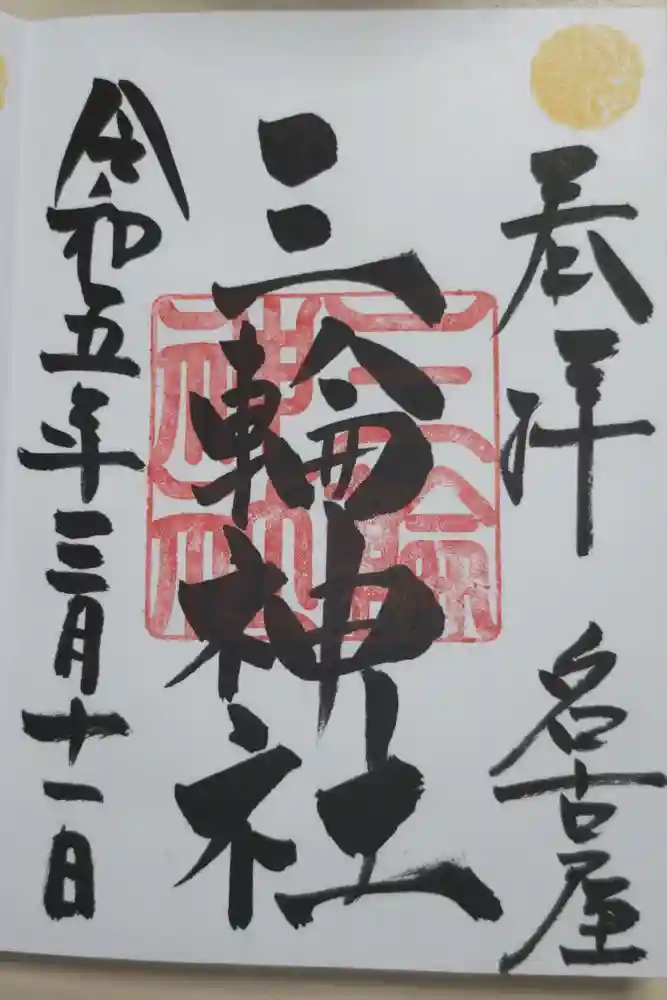 奉拝
名古屋
三輪神社
三輪神社
令和五年三月十一日